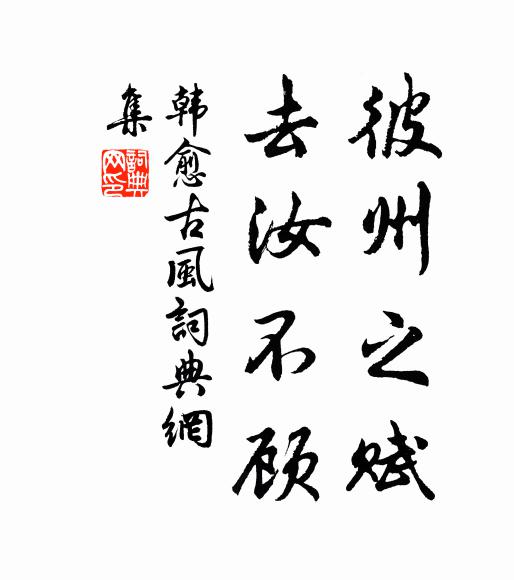 彼州之赋
去汝不顾
韩愈古風詞典網
集
詞典網印